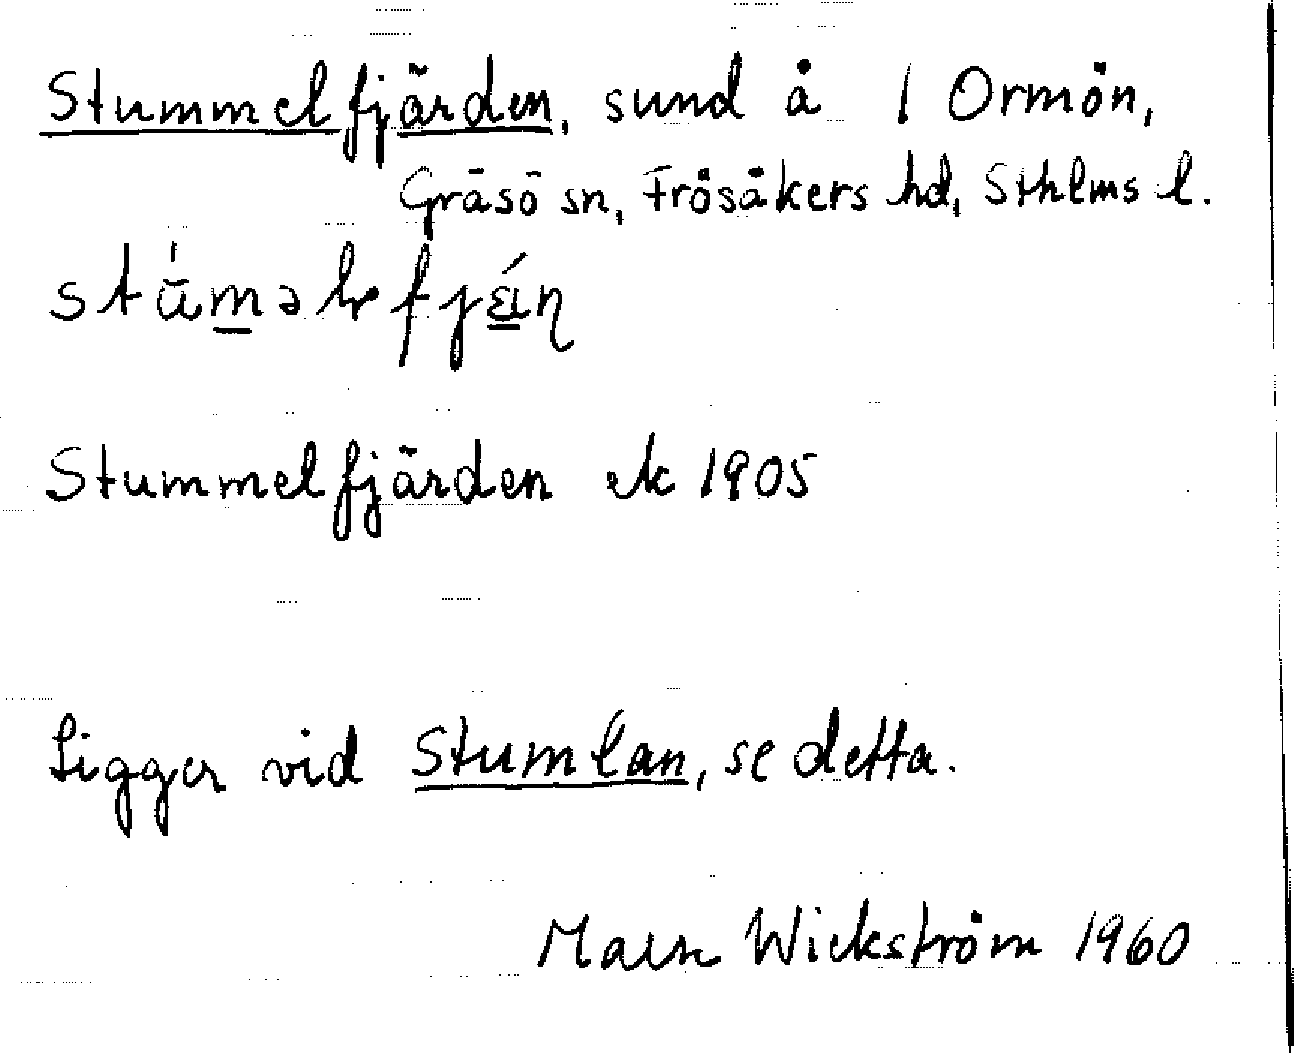 Stummelfjärden, sund å 1 Ormön,
Gräsö sn, Frösåkers hd, Sthlms l.
Stummelfjärden ek 1905
Ligger vid Stumlan, se detta.
Wickström 1960